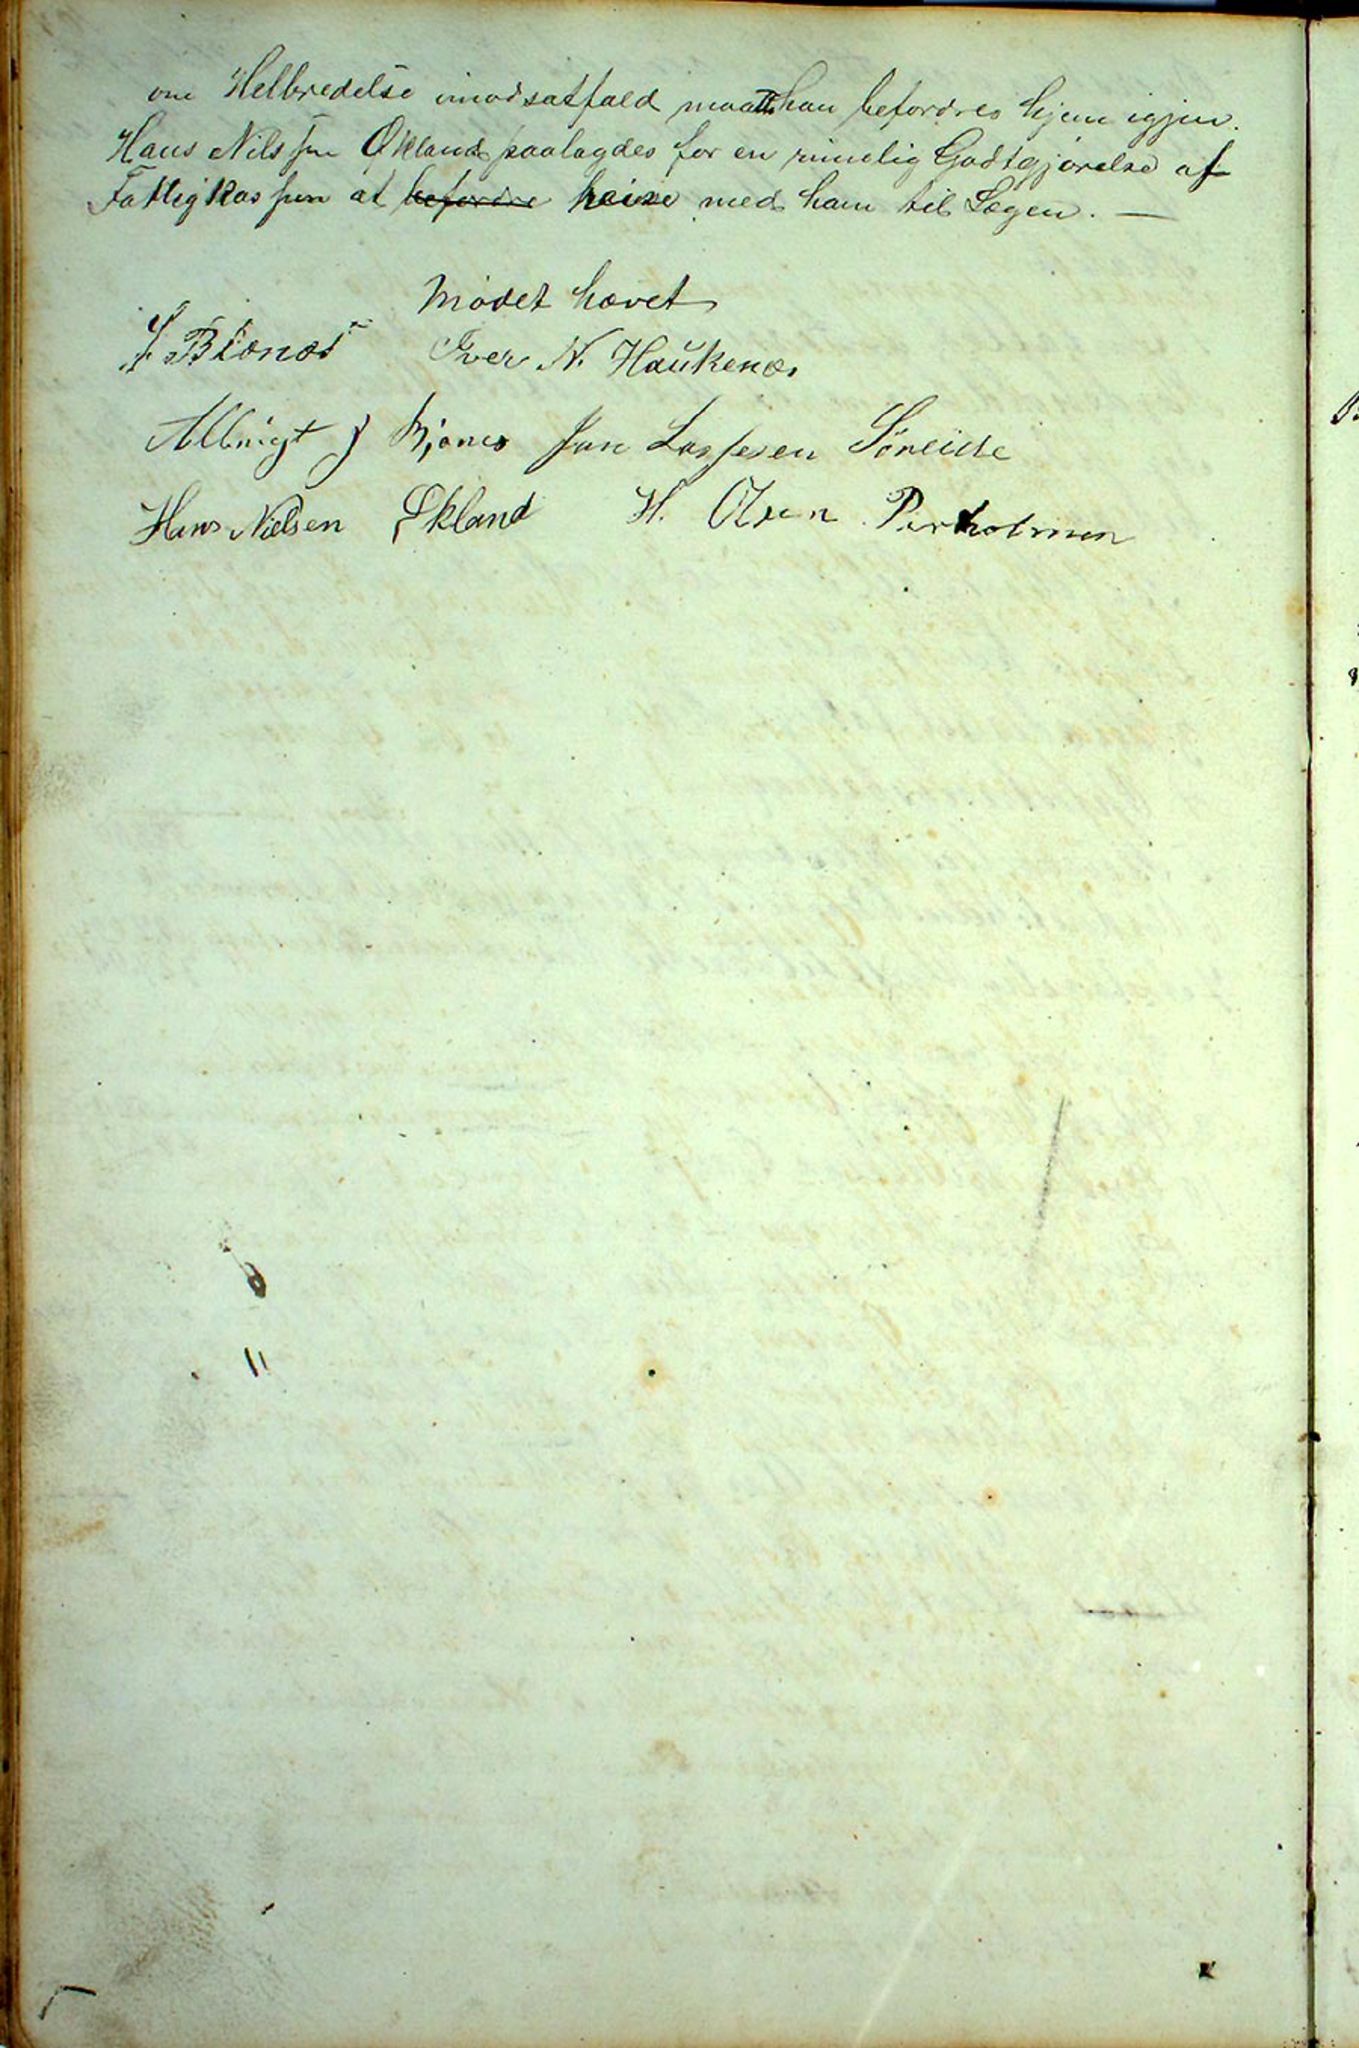 om Helbredelse imodsatfald maatte han befordres hjem igjen.
Hans Nilssen Økland paalagdes for en rimelig Godtgjørelse af
Fattigkassen at befordre reise med ham til Lægen. —
Mødet hævet
J. Bionæs Iver N. Haukenæs
Albrigt J Bjones Jan Lassesen Søreide
Hans Nielsen Økland H. Olsen Porholmen